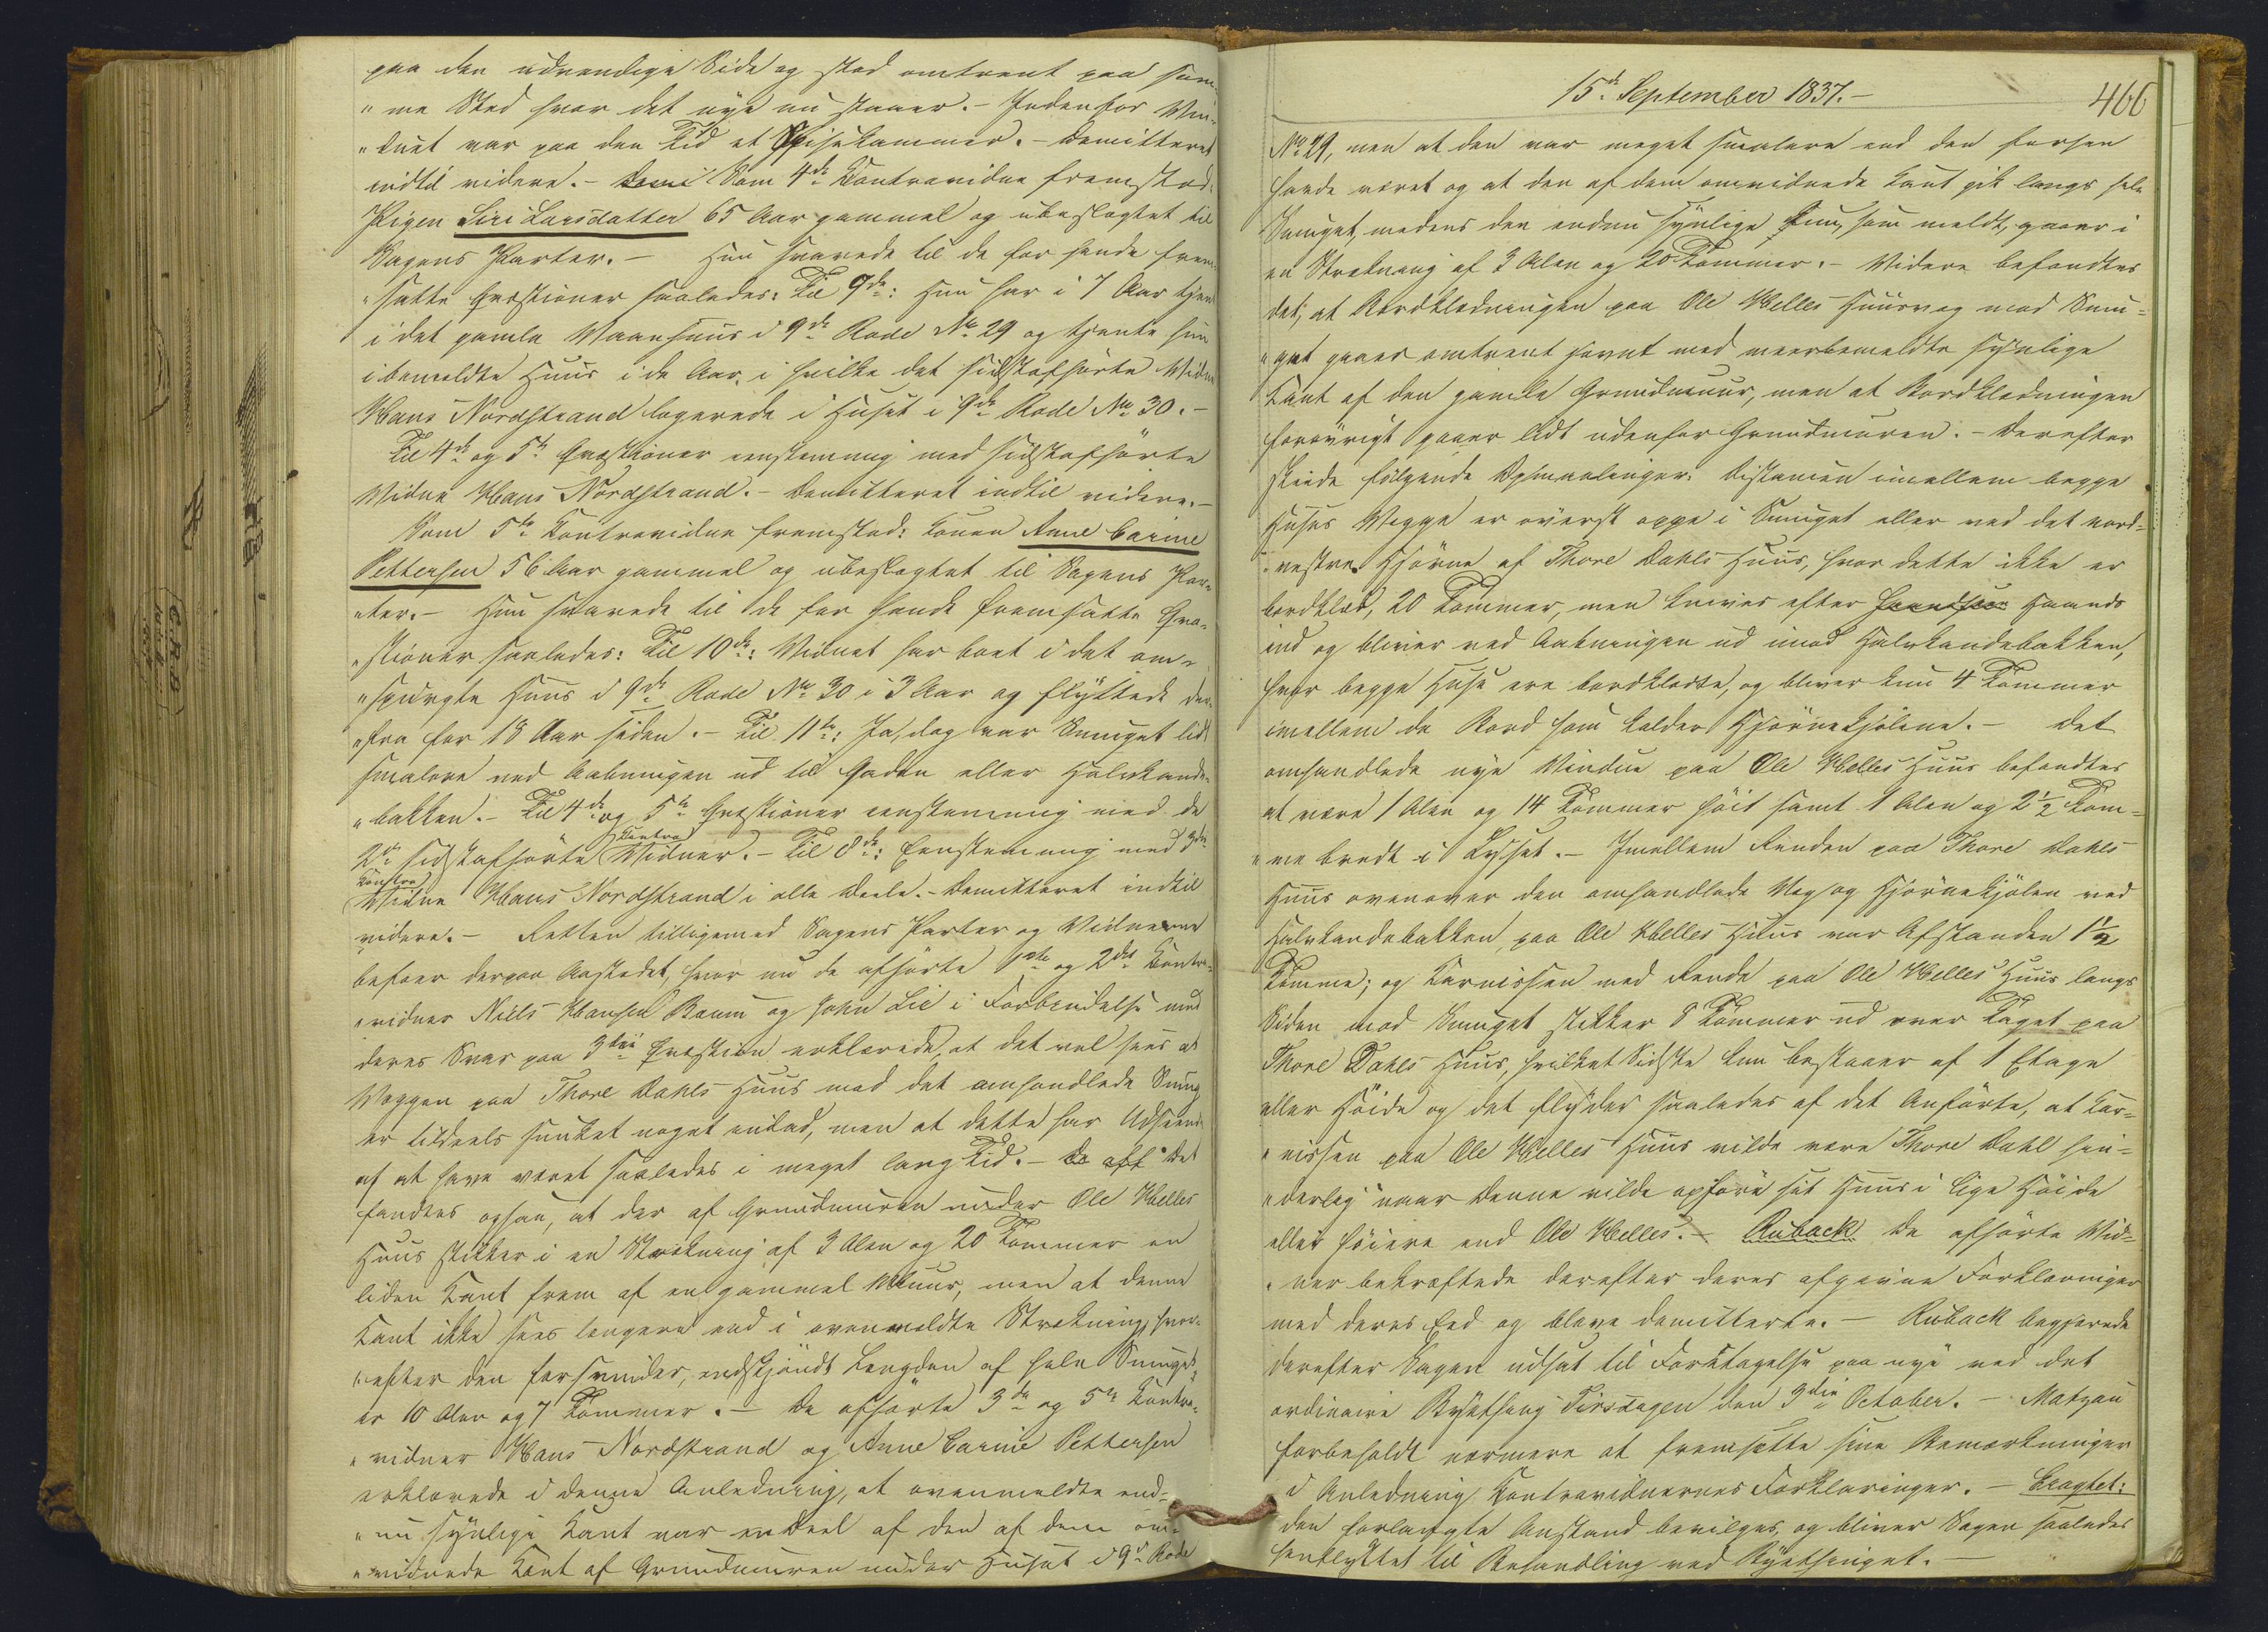 paa den udvendige Side og stod omtrent paa sam-
"me Sted hvor det nye nu staaer. - Indenfor Vin-
"duet var paa den Tid et Spisekammer. - Demitteret
indtil videre. - Som 4de Contravidne fremstod:
Pigen Siri Larsdatter 65 Aar gammel og ubeslægtet til
Sagens Parter. - Hun svarede til de for hende frem-
"satte Qvæstioner saaledes: Til 9de: Hun har i 7 Aar tjent
i det gamle Vaanhuus i 9de Rode No 29 og tjente hun
i bemeldte Huus i de Aar, i hvilke det sidstafhørte Vidne
Hans Nordstrand logerede i Huset i 9de Rode No 30. -
Til 4de og 5te Qvæstioner eenstemmig med sidstafhørte
Vidne Hans Nordstrand. - Demitteret indtil videre. -
Som 5te Contravidne fremstod: Konen Anne Carine
Pettersen 56 Aar gammel og ubeslægtet til Sagens Par-
"ter. - Hun svarede til de for hende fremsatte Qvæ-
"stioner saaledes: Til 10de: Vidnet har boet i det om-
"spurgte Huus i 9de Rode No 30 i 3 Aar og flyttede der-
"fra for 18 Aar siden. - Til 11te: Ja, dog var Smuget lidt
smalere ved Aabningen ud til Gaden eller Halvkande-
"bakken. - Til 4de og 5te Qvæstioner eenstemmig med de
2de sidstafhørte Contra Vidner. - Til 8de: Eenstemmig med 3die
Contra Vidne Hans Nordstrand i alle Deele. - Demitteret indtil
videre. - Retten tilligemed Sagens Parter og Vidnerne
befoer derpaa Aastedet, hvor nu de afhørte 1ste og 2det Contra-
"vidner Niels Hansen Baum og John Lie i Forbindelse med
deres Svar paa 3die Qvæstion erklærede, at det vel sees at
Væggen paa Thore Dahls Huus mod det omhandlede Smug
er tildeels sunket noget indad, men at dette har Udseende
af at have været saaledes i meget lang Tid. - Det
fandtes ogsaa, at der af Grundmuren under Ole Helles
Huus stikker i en Strækning af 3 Alen og 20 Tommer en
liden Kant frem af en gammel Muur, men at denne
Kant ikke sees længere end i ovenmeldte Strækning, hvor-
"efter den forsvinder, endskjøndt Længden af hele Smuget
er 10 Alen og 7 Tommer. - De afhørte 3de og 5te Contra-
"vidner Hans Nordstrand og Anne Carine Pettersen
erklærede i denne Anledning, at ovenmeldte end-
"nu synlige Kant var en Deel af den af dem om-
"vidnede Kant af Grundmuren under Huset i 9de Rode
15de September 1837. -
466
No 29, men at den var meget smalere end den forhen
havde været og at den af dem omvidnede Kant gik langs hele
Smuget, medens den endnu synlige kun, som meldt, gaaer i
en Strækning af 3 Alen og 20 Tommer. - Videre befandtes
det, at Bordklædningen paa Ole Helles Huusvæg mod Smu-
"get gaaer omtrent jevnt med meerbemeldte synlige
Kant af den gamle Grundmuur, men at Bordklædningen
forøvrigt gaaer lidt udenfor Grundmuren. - Derefter
skeede følgende Opmaalinger: Distancen imellem begge
Huses Vægge er øverst oppe i Smuget eller ved det nord-
"vestre Hjørne af Thore Dahls Huus, hvor dette ikke er
bordklæd, 20 Tommer, men knives efter Haands
ind og bliver ved Aabningen ud imod Halvkandebakken,
hvor begge Huse ere bordklædte, og bliver kun 4 Tommer
imellem de Bord som kaldes Hjørnekjølene. - Det
omhandlede nye Vindue paa Ole Helles Huus befandtes
at være 1 Alen og 14 Tommer høit samt 1 Alen og 2½ Tom-
"me bredt i Lyset. - Imellem Renden paa Thore Dahls
Huus ovenover den omhandlede Væg og Hjørnekjølen ved
Halvkandebakken, paa Ole Helles Huus var Afstanden 1½
Tomme; og Karnissen med Rende paa Ole Helles Huus langs
Siden mod Smuget stikker 8 Tommer ud over Taget paa
Thore Dahls Huus, hvilket Sidste kun bestaaer af 1 Etage
eller Høide og det flyder saaledes af det Anførte, at Kar-
"nissen paa Ole Helles Huus vilde være Thore Dahl hin-
"derlig naar denne vilde opføre sit Huus i lige Høide
eller høiere end Ole Helles. - Ruback De afhørte Vid-
"ner bekræftede derefter deres afgivne Forklaringer
med deres Eed og bleve demitterte. - Ruback begjærede
derefter Sagen udsat til Foretagelse paa nye ved det
ordinaire Byething Tirsdagen den 3die October. - Matzau
forbeholdt nærmere at fremsætte sine Bemærkninger
i Anledning Contravidnernes Forklaringer. - Eragtet:
den forlangte Anstand bevilges, og bliver Sagen saaledes
henflyttet til Behandling ved Byethinget. -